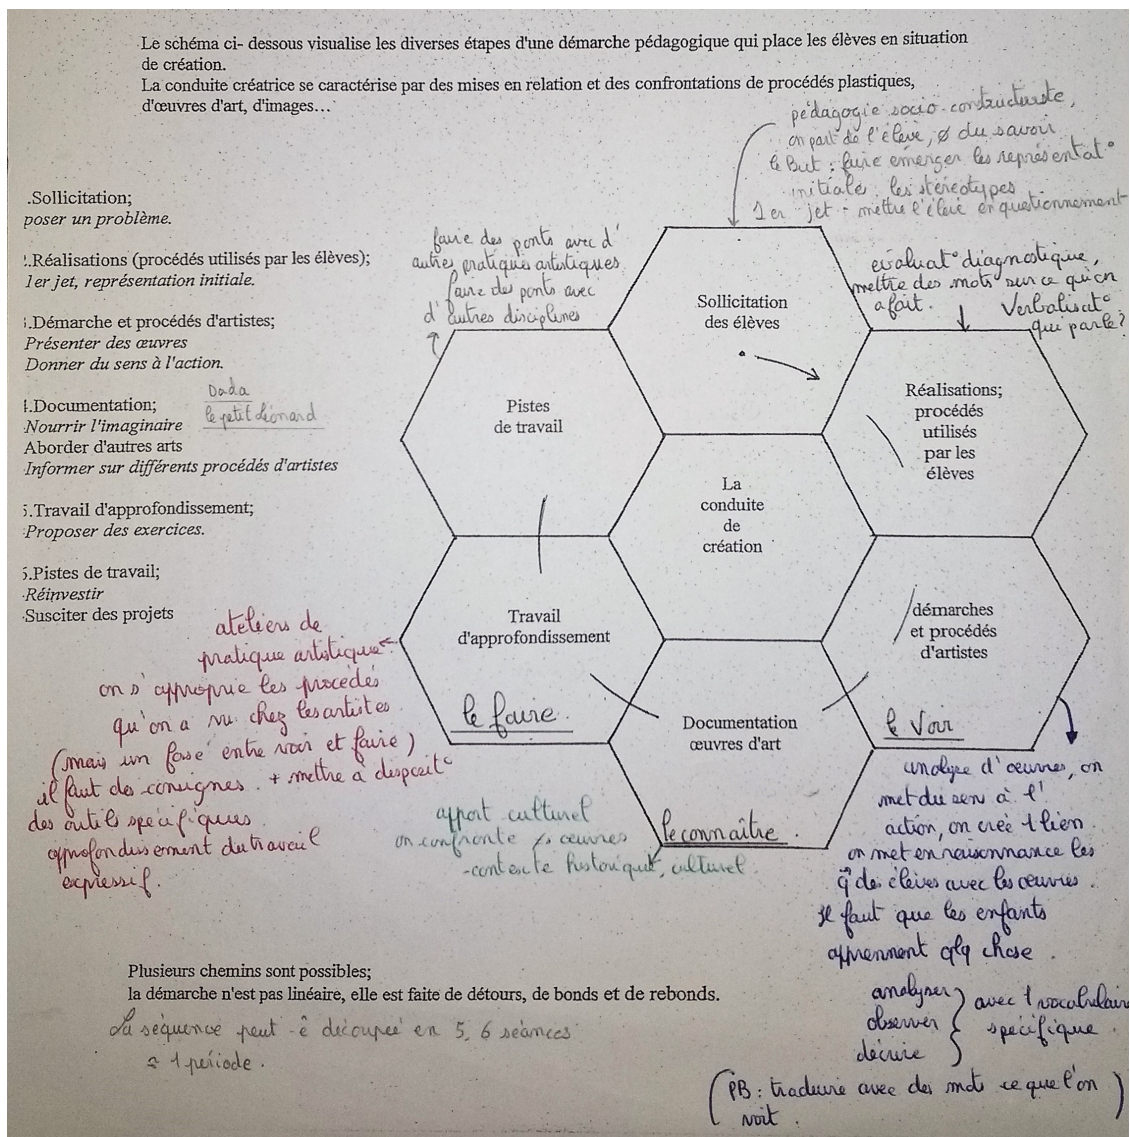 Le schéma ci- dessous visualise les diverses étapes d'une démarche pédagogique qui place les élèves en situation
de création.
La conduite créatrice se caractérise par des mises en relation et des confrontations de procédés plastiques,
d'œuvres d'art, d'images…
pédagogie socio-constructiviste,
on part de l'élève, ø du savoir
le But : faire émerger les représentat°
initiale : les stéréotypes
1er jet - mettre l'élève en questionnement
.Sollicitation;
poser un problème.
.Réalisations (procédés utilisés par les élèves);
1er jet, représentation initiale.
.Démarche et procédés d'artistes;
Présenter des œuvres
Donner du sens à l'action.
.Documentation;
Dada
le petit Léonard
Nourrir l'imaginaire
Aborder d'autres arts
Informer sur différents procédés d'artistes
5.Travail d'approfondissement;
Proposer des exercices.
5.Pistes de travail;
Réinvestir
Susciter des projets
faire des ponts avec d'
autres pratiques artistiques
faire des ponts avec
d'autres disciplines
évaluat° diagnostique,
mettre des mots sur ce qu'on
a fait.
Verbalisat°
qui parle?
Sollicitation
des élèves
Pistes
de travail
Réalisations;
procédés
utilisés
par les
élèves
La
conduite
de
création
Travail
d'approfondissement
le faire.
démarches
et procédés
d'artistes
le Voir
Documentation
œuvres d'art
le connaître.
ateliers de
pratique artistique
on s'approprie les procédés
qu'on a vu chez les artistes
(mais un fossé entre voir et faire)
il faut des consignes. + mettre à disposit°
des outils spécifiques.
approfondissement du travail
expressif.
apport culturel
on confronte œuvres
-contexte historique, culturel.
analyse d'œuvres, on
met du sen à l'
action, on crée 1 lien.
on met en raisonnance les
q° des élèves avec les œuvres.
Il faut que les enfants
apprennent qlq chose.
analyser
observer
décrire
avec 1 vocabulaire
spécifique.
(PB : traduire avec des mots ce que l'on
voit.)
Plusieurs chemins sont possibles;
la démarche n'est pas linéaire, elle est faite de détours, de bonds et de rebonds.
La séquence peut ê découpée en 5, 6 séances
≈ 1 période.